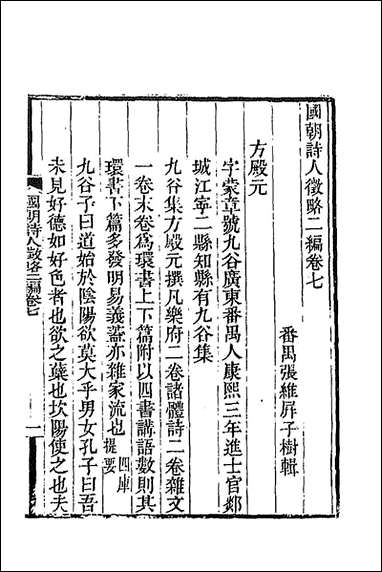 國朝詩人徵略二編卷七
番禺張維屛子樹輯
方殿元
字蒙章號九谷廣東番禺人康熙三年進士官郯
城江寧二縣知縣有九谷集
九谷集方殿元撰凡樂府二卷諸體詩二卷雜文
一卷末卷爲環書上下篇附以四書講語數則其
環書下篇多發明易義蓋亦雜家流也四庫提要
九谷子曰道始於陰陽欲莫大乎男女孔子曰吾
未見好德如好色者也欲之蘖也坎陽使之也夫
國朝詩人徵略二編卷七
一